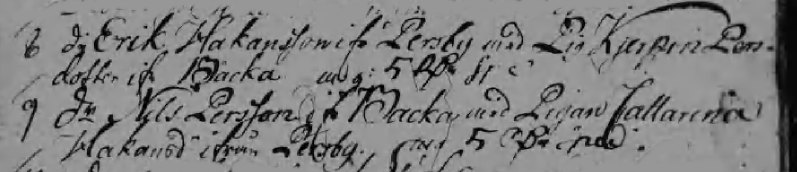 8 dr Erik Hakansson ifr Persby med Pig Kjerstin Pers-
dotter ifr Backa
9 dr Nils Persson ifr Backa med Pigan Cattarina
Hakansd ifrån Persby.